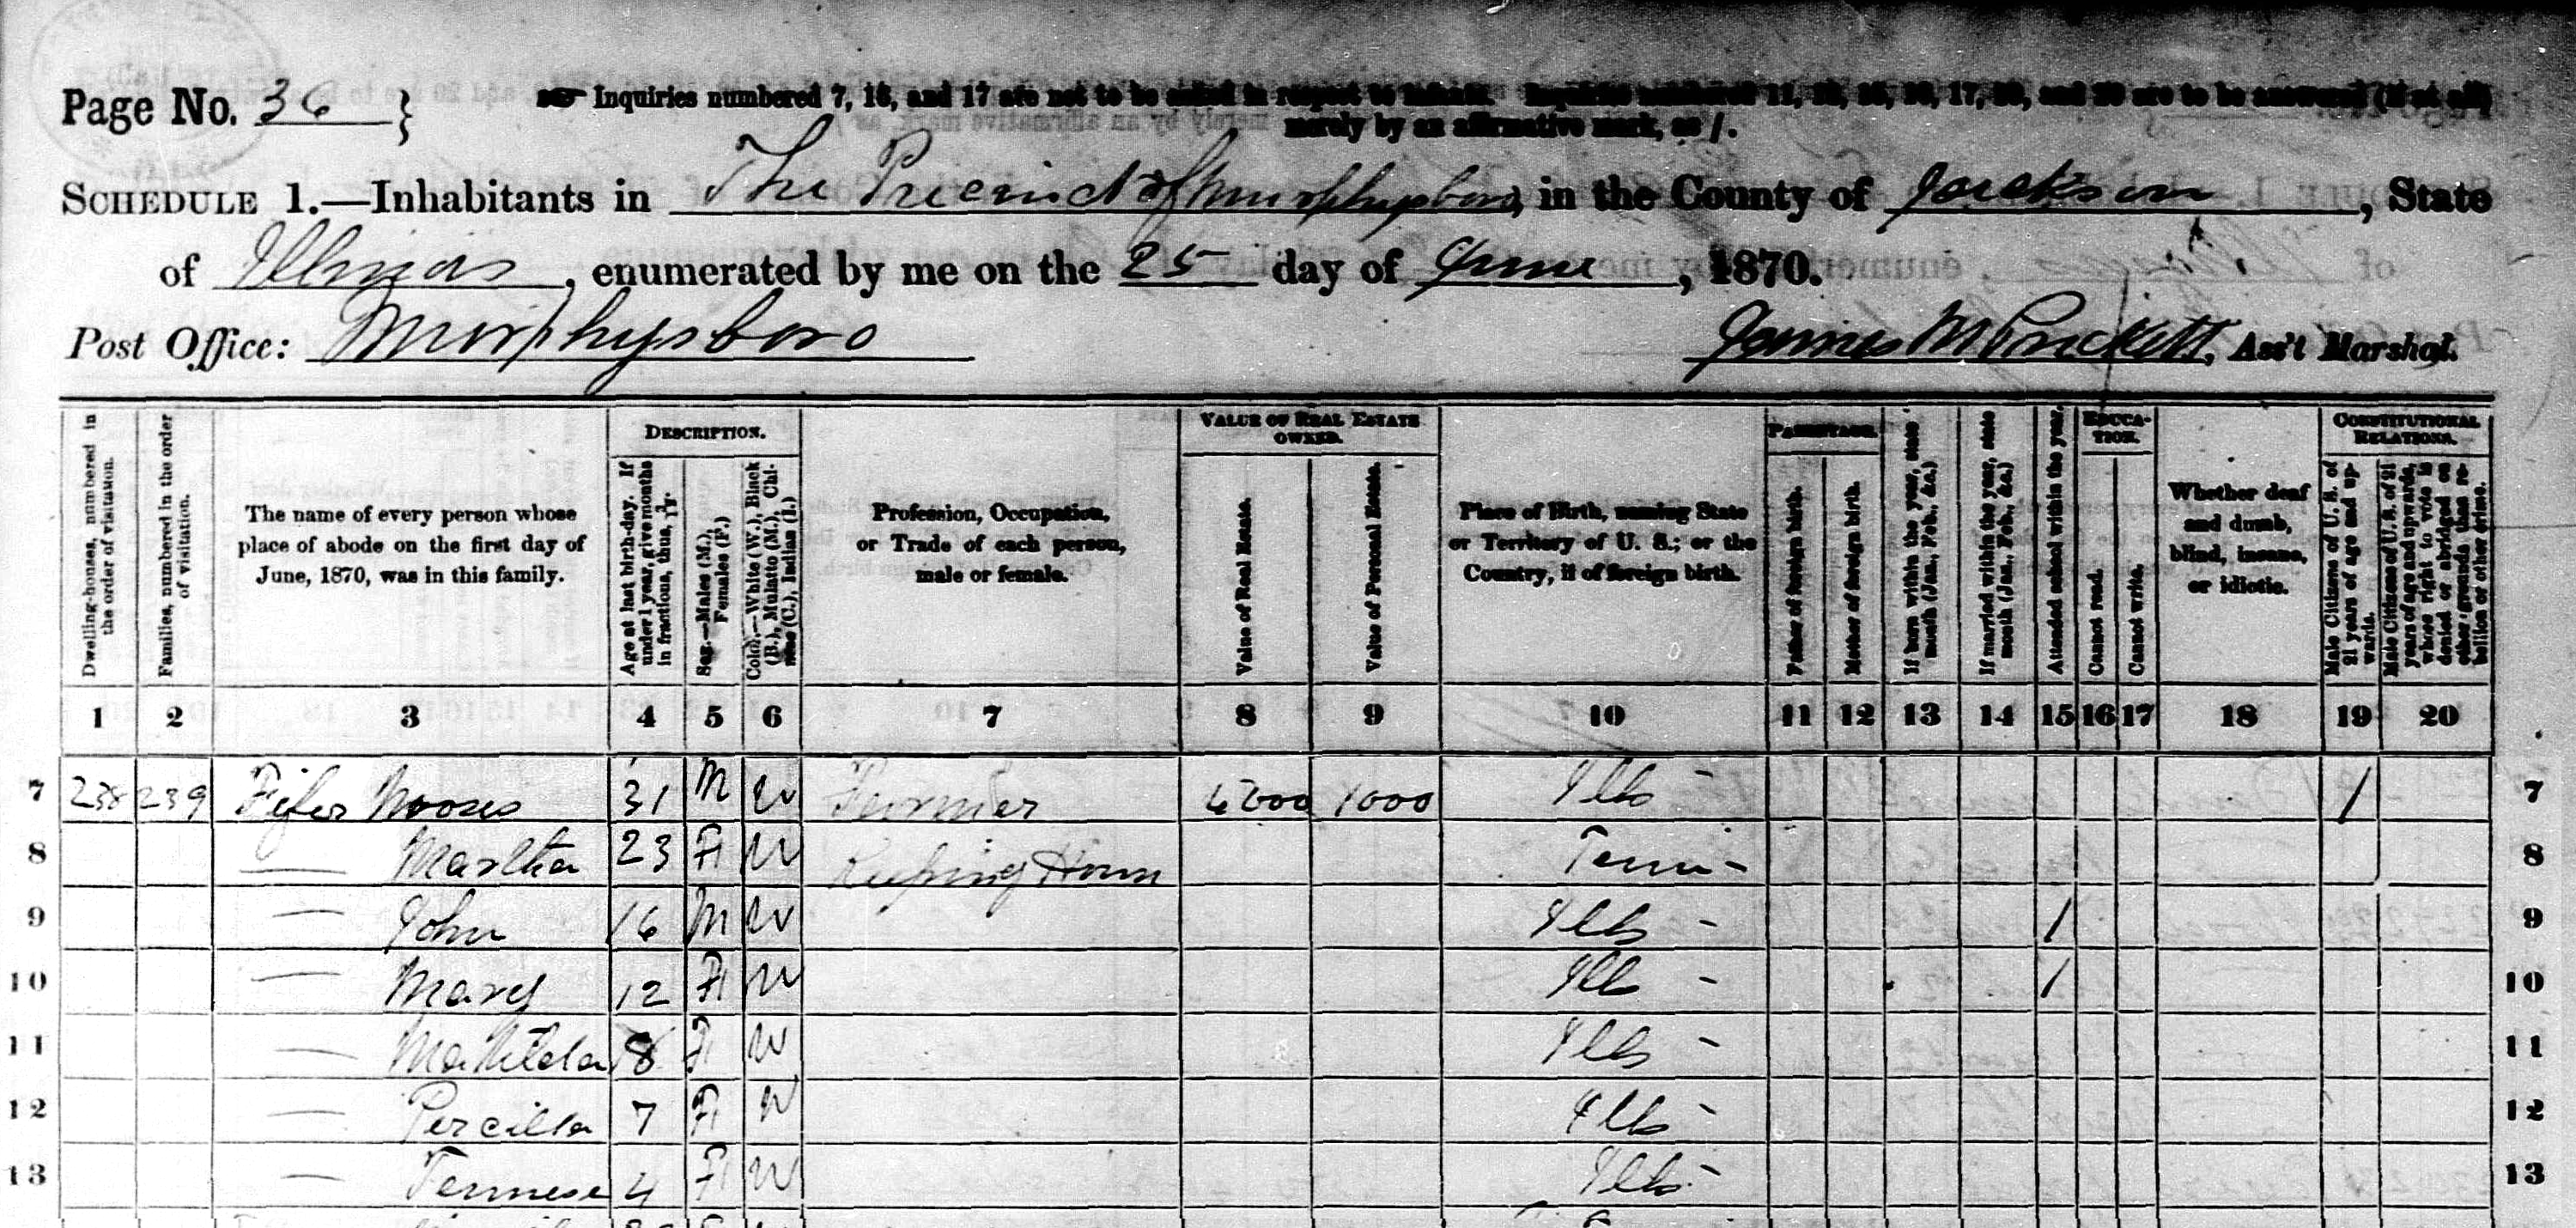 Page No. 36 }
Inquiries numbered 7, 16, and 17 are not to be asked in respect to infants. Inquiries numbered 11, 12, 15, 16, 17, 19, and 20 are to be answered (if at all)
merely by an affirmative mark, as /.
SCHEDULE 1.—Inhabitants in The Precinct of Murphysboro, in the County of Jackson, State
of Illinois, enumerated by me on the 25 day of June, 1870.
Post Office: Murphysboro James M Prickett, Ass't Marshal.
Dwelling-houses, numbered in the order of visitation.
Families, numbered in the order of visitation.
The name of every person whose place of abode on the first day of June, 1870, was in this family.
DESCRIPTION.
Age at last birth-day. If under 1 year, give months in fractions, thus, 3/12.
Sex.—Males (M.), Females (F.)
Color.—White (W.), Black (B.), Mulatto (M.), Chinese (C.), Indian (I.)
Profession, Occupation, or Trade of each person, male or female.
VALUE OF REAL ESTATE OWNED.
Value of Real Estate.
Value of Personal Estate.
Place of Birth, naming State or Territory of U. S.; or the Country, if of foreign birth.
PARENTAGE.
Father of foreign birth.
Mother of foreign birth.
If born within the year, state month (Jan., Feb., &c.)
If married within the year, state month (Jan., Feb., &c.)
Attended school within the year.
EDUCATION.
Cannot read.
Cannot write.
Whether deaf and dumb, blind, insane, or idiotic.
CONSTITUTIONAL RELATIONS.
Male Citizens of U. S. of 21 years of age and upwards.
Male Citizens of U. S. of 21 years of age and upwards, whose right to vote is denied or abridged on other grounds than rebellion or other crime.
1 2 3 4 5 6 7 8 9 10 11 12 13 14 15 16 17 18 19 20
7 238 239 Fifer Mooses 31 M W Farmer 6000 1000 Ills - / 7
8 — Martha 23 F W Keeping House Tenn - 8
9 — John 16 M W Ills - / 9
10 — Mary 12 F W Ills - / 10
11 — Matilda 8 F W Ills - 11
12 — Percilla 7 F W Ills - 12
13 — Tennese 4 F W Ills - 13